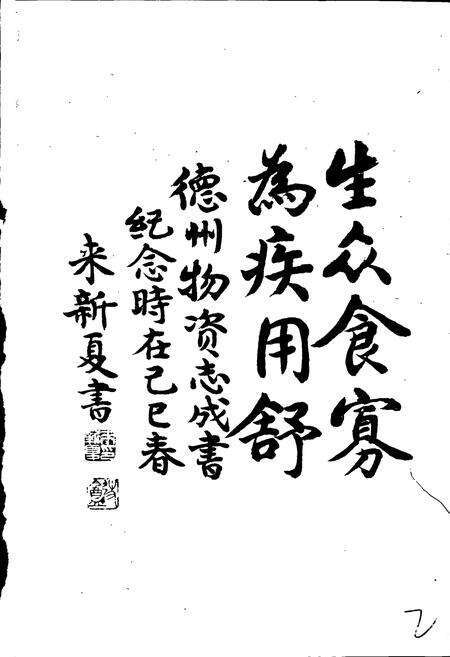 生众食寡
為疾用舒
德州物资志成书
纪念時在己巳春
来新夏書